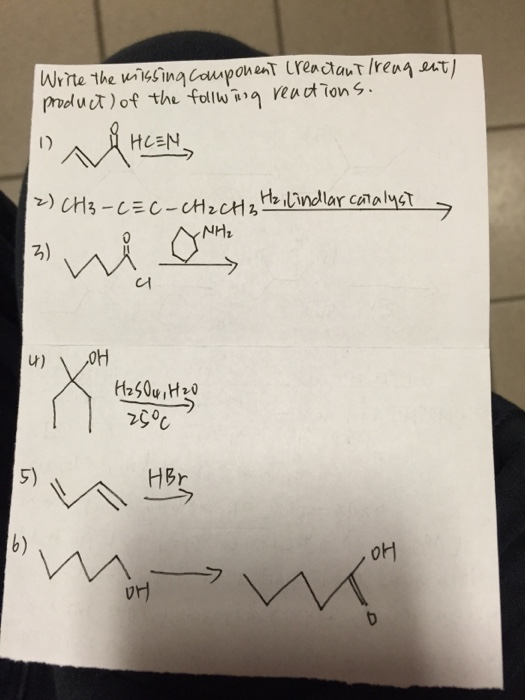 Write the missing component (reactant/reagent/
product) of the following reactions.
1) O HC≡N
2) CH3-C≡C-CH2CH3 H2, Lindlar catalyst
3) O Cl NH2
4) OH H2SO4, H2O
25°C
5) HBr
6) OH OH
O